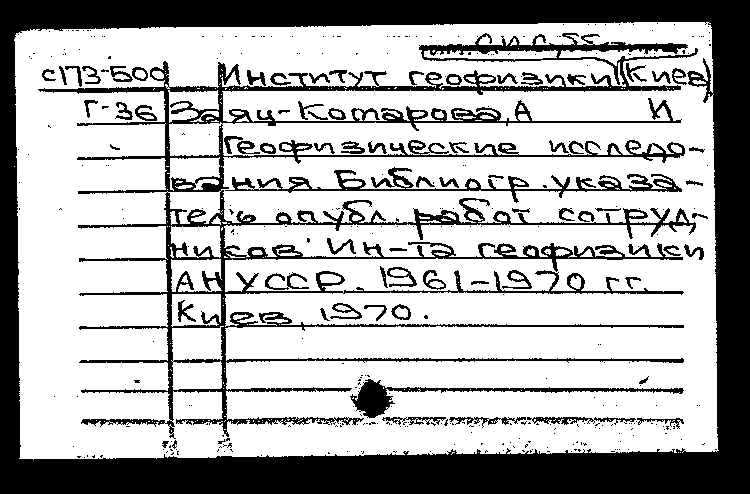 с173-500 Институт геофизики (Киев)
Г-36 Заяц-Комарова, А И
Геофизические исследо-
вания. Библиогр. указа-
тель опубл. работ сотруд-
ников Ин-та геофизики
АН УССР. 1961-1970 гг.
Киев, 1970.